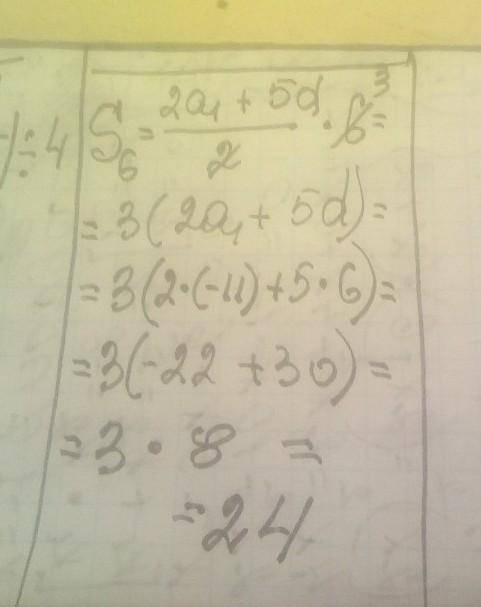 )÷4
S₆ = (2a₁ + 5d)/2 · 6̸³ =
= 3(2a₁ + 5d) =
= 3(2·(-11)+5·6) =
= 3(-22 + 30) =
= 3 · 8 =
= 24